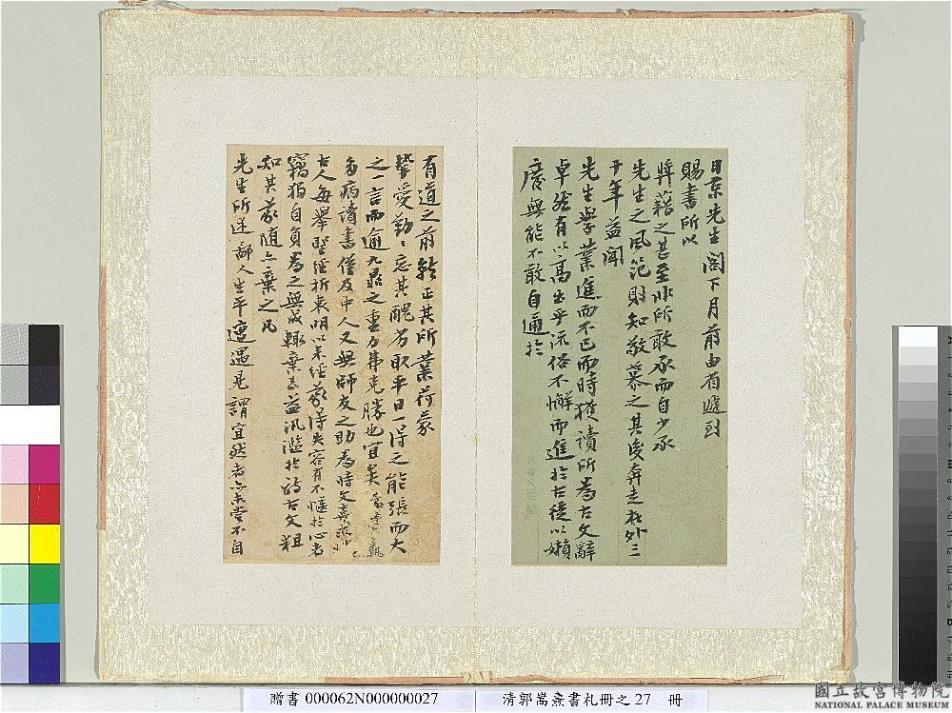 日京先生閣下月前由省遞到
賜書所以
獎藉之甚至非所敢承而自少承
先生之風範則知敬慕之其後奔走在外三
十年益聞
先生學業進而不已而時獲讀所為古文辭
卓然有以高出乎流俗不懈而進於古徒以嬾
廢無能不敢自通於
有道之前就正其所業荷蒙
摯愛勤勤忘其醜劣取平日一得之能張而大
之一言而逾九鼎之重力弗克勝也宜矣
多病讀書僅及中人又無師友之助為時文
古人每舉聖經折衷明以來經義得失容有不愜於心者
竊獨自負為之無成輒棄去益汎濫於詩古文粗
知其義隨亦棄之凡
先生所述鄙人生平遭遇見謂宜然者亦未嘗不自
贈書 000062N000000027
清郭嵩燾書札冊之27 冊
國立故宮博物院
NATIONAL PALACE MUSEUM